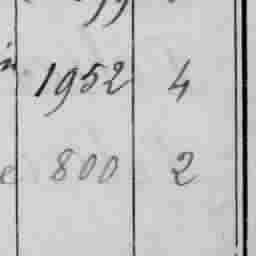 1952 4
800 2